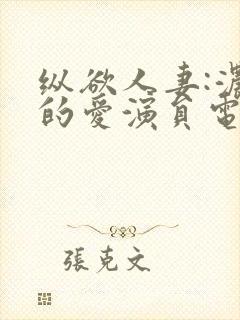 纵欲人妻:濃
的愛演員電
張克文